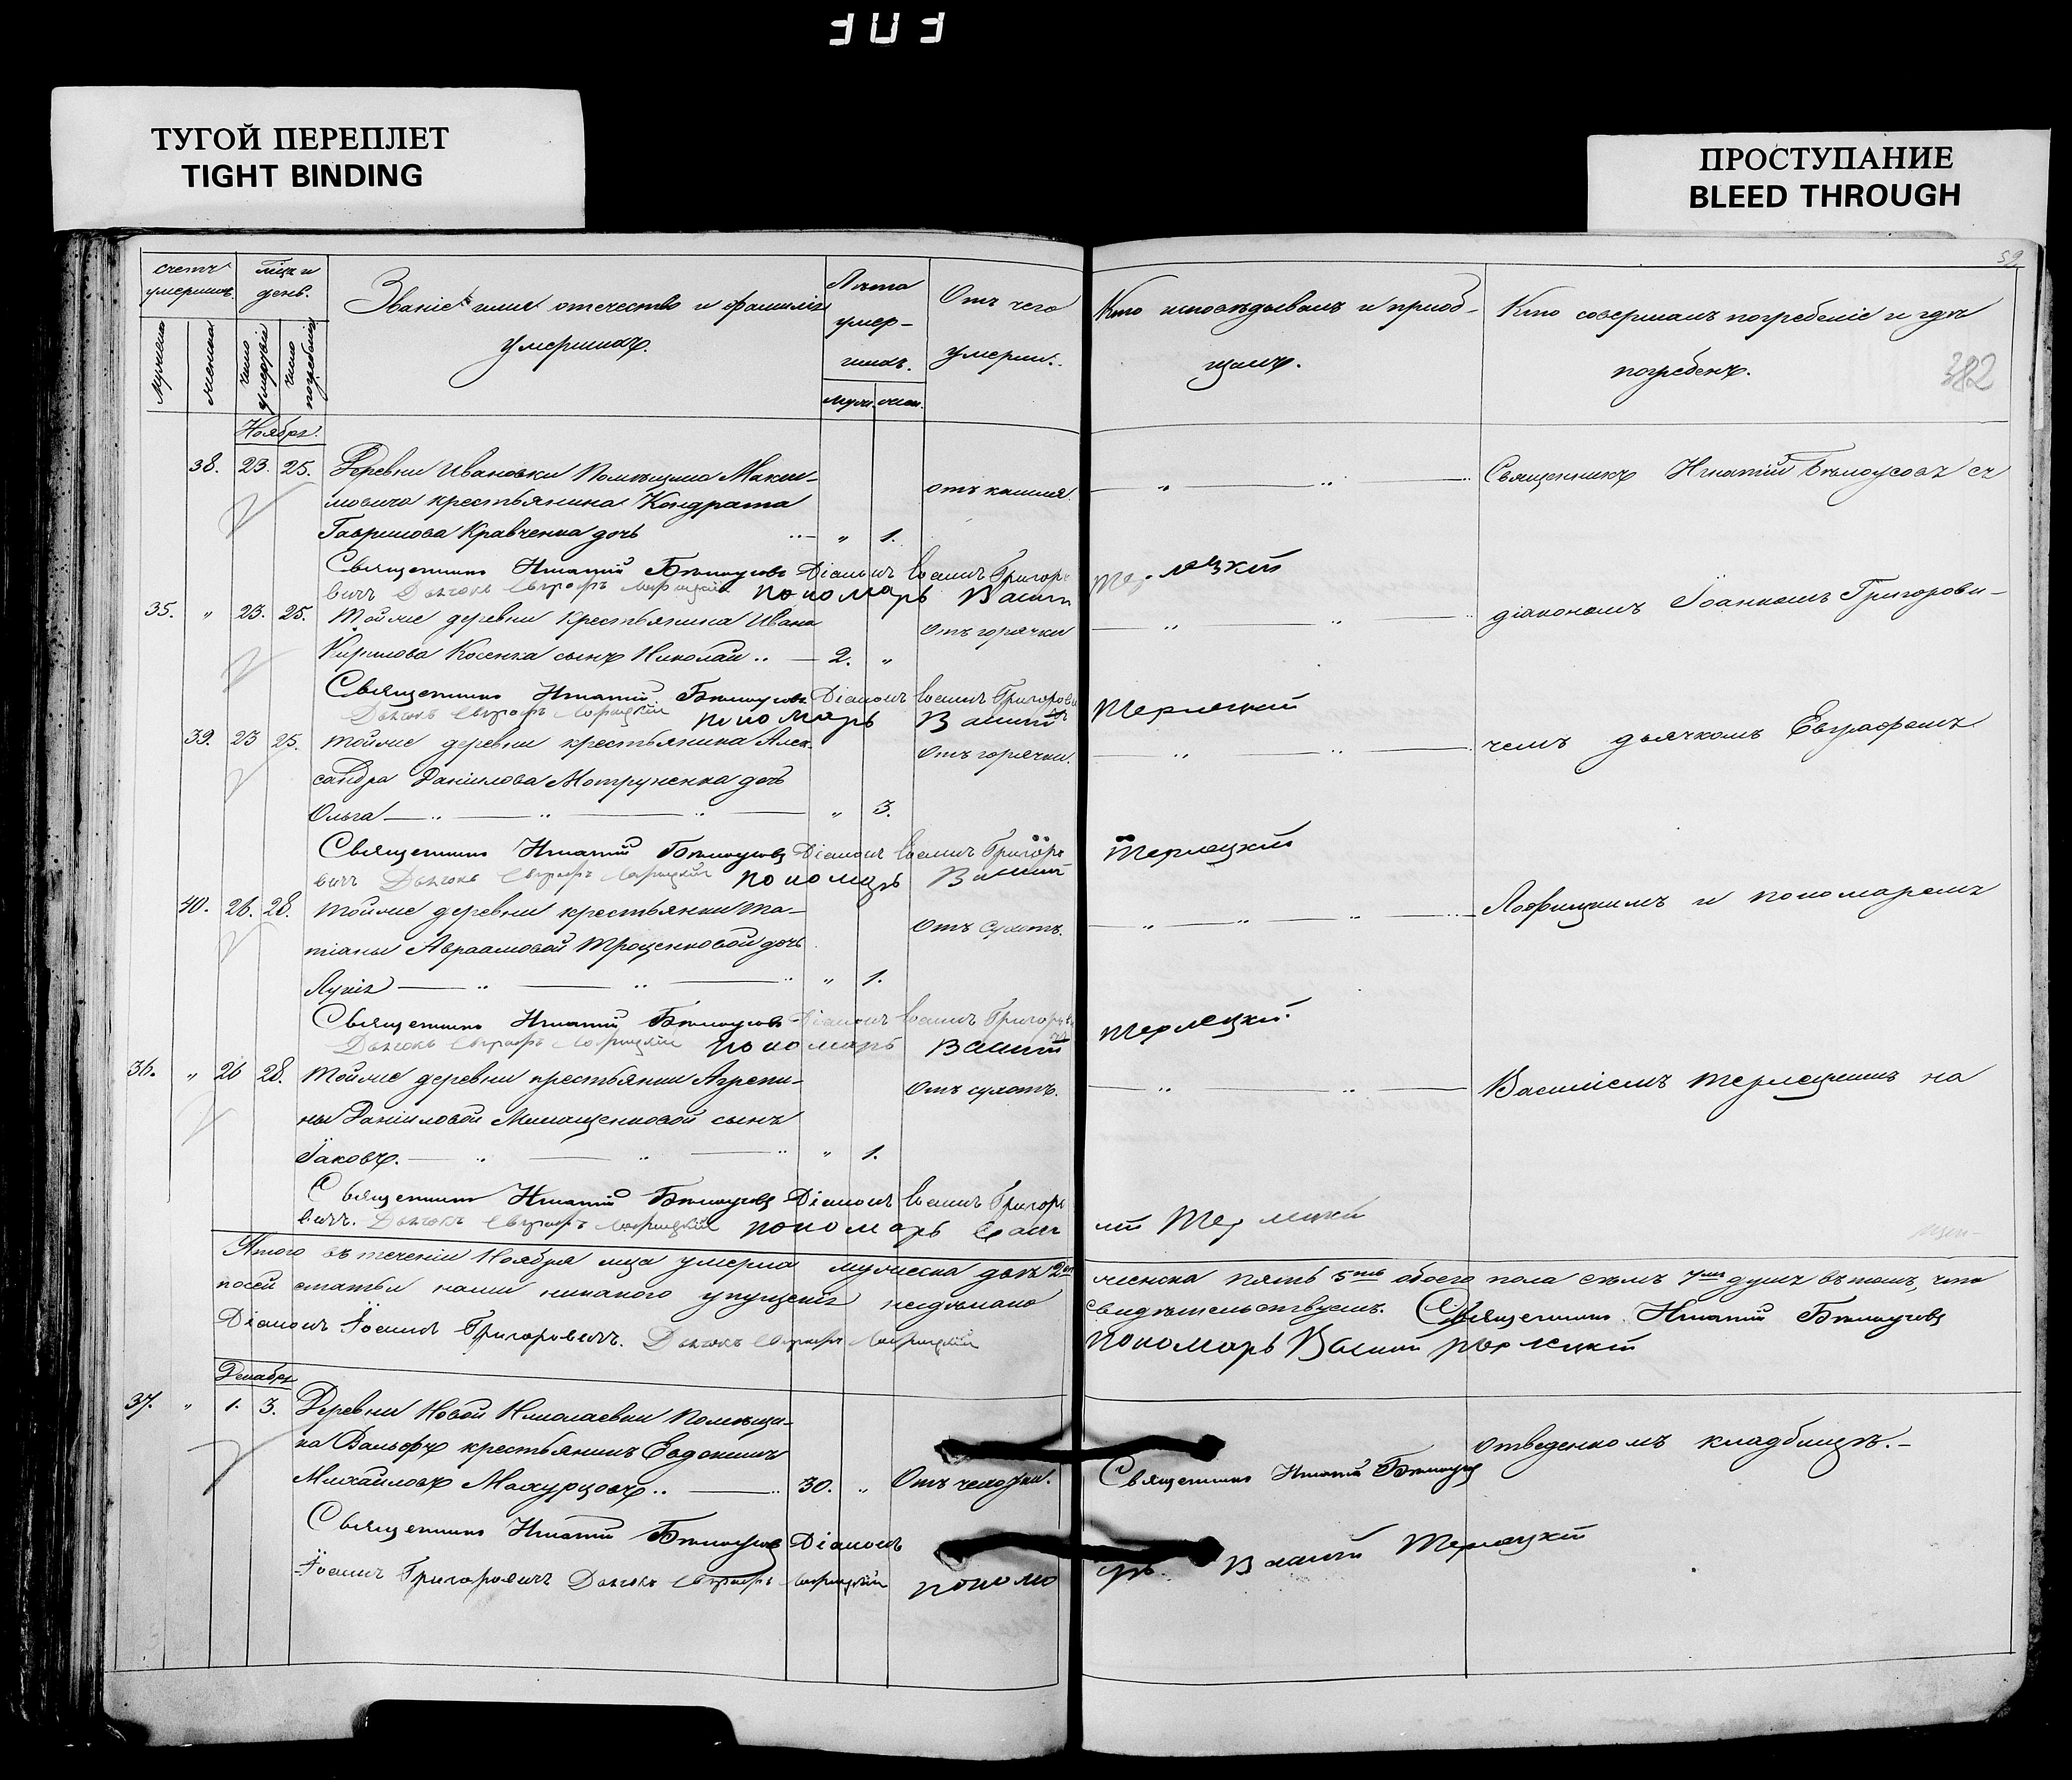 303
ТУГОЙ ПЕРЕПЛЕТ
TIGHT BINDING
ПРОСТУПАНИЕ
BLEED THROUGH
52
382
счетъ умершихъ
мѣсяцъ и день.
Званіе, имя отечество и фамилія
умершихъ.
Лѣта
умер-
шихъ.
Отъ чего
умерли.
Кто исповѣдывалъ и приоб-
щалъ.
Кто совершалъ погребеніе и гдѣ
погребенъ.
мужеска
женска
число умертвія
число погребенія
муж. жен.
Ноябрь.
38. 23. 25. Деревни Ивановки Помѣщика Макси-
мовича крестьянина Кондрата отъ кашля.
Гаврилова Кравченка дочь " 1.
Священникъ Игнатій Бѣлоусовъ съ
Священникъ Игнатій Бѣлоусовъ Діаконъ Іоаннъ Григоро
вичъ Дьячокъ Евграфъ пономарь Васил Терлецкій
35. " 23. 25. Той же деревни крестьянина Ивана отъ горячки
Кирилова Косенка сынъ Николай 2. "
діакономъ Іоанномъ Григорови-
Священникъ Игнатій Бѣлоусовъ Діаконъ Іоаннъ Григорови
Дьячокъ Евграфъ пономарь Василій Терлецкій
39. 23 25. Той же деревни крестьянина Алек- Отъ горячки.
сандра Даніилова Мотруненка дочь
Ольга " 3.
чемъ дьячкомъ Евграфомъ
Священникъ Игнатій Бѣлоусовъ Діаконъ Іоаннъ Григоро
вичъ Дьячокъ Евграфъ пономарь Василій Терлецкій
40. 26. 28. Той же деревни крестьянки Та- Отъ сухотъ.
тіаны Авраамовой Троценковой дочь
Лукія " 1.
и пономаремъ
Священникъ Игнатій Бѣлоусовъ Діаконъ Іоаннъ Григорови
Дьячокъ Евграфъ пономарь Василій Терлецкій.
36. " 26 28. Той же деревни крестьянки Агрепи- Отъ сухотъ.
ны Даніиловой сынъ
Іаковъ. " 1.
Василіемъ Терлецкимъ на
Священникъ Игнатій Бѣлоусовъ Діаконъ Іоаннъ Григоро
вичъ. Дьячокъ Евграфъ пономарь Васил ій Терлецкій
Итого въ теченіи Ноября мца умерло мужеска двѣ 2ѣ женска пять 5ть обоего пола семь 7мь душъ въ томъ, что
по сей статьи нами никакого упущенія несдѣлано свидѣтельствуемъ. Священникъ Игнатій Бѣлоусовъ
Діаконъ Іоаннъ Григоровичъ. Дьячокъ Евграфъ пономарь Василій Терлецкій
Декабрь
37. " 1. 3. Деревни Новой Николаевки Помѣщи-
ка Вальофъ крестьянинъ Евдокимъ
Михайловъ 30. " Отъ чахотки.
отведенномъ кладбищѣ.-
Священникъ Игнатій Бѣлоусовъ
Священникъ Игнатій Бѣлоусовъ Діаконъ
Іоаннъ Григоровичъ Дьячокъ Евграфъ пономарь Василій Терлецкій